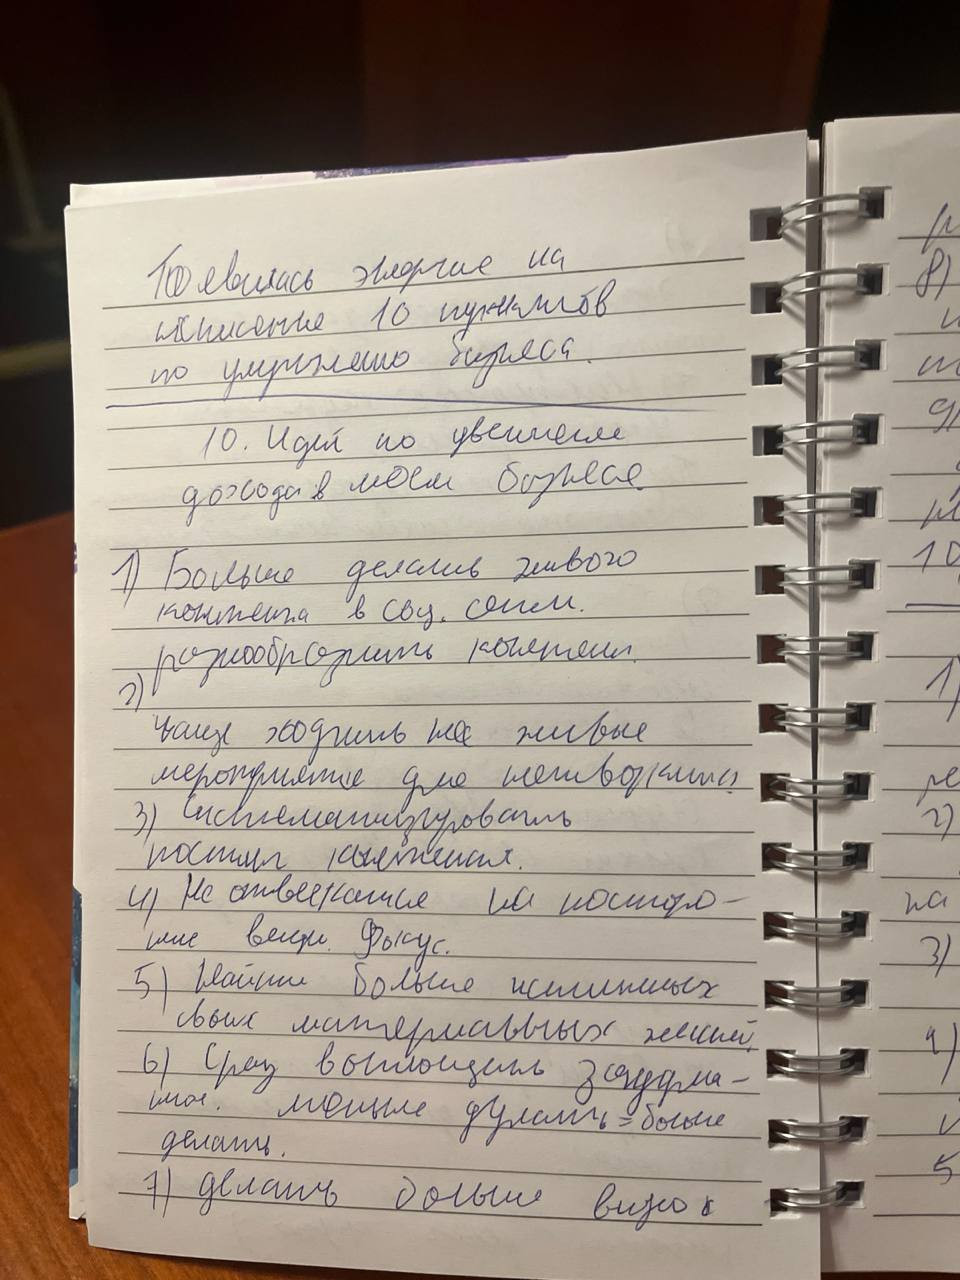 Появилась энергие на
написание 10 пунктов
по улучшению бизнеса.
10. Идей по увеличен
дохода в моем бизнесе.
1) Больше делать живого
контента в соц. сети.
разнообразить контент.
2)
Чаще ходить на живые
мероприятие для нетворкинга
3) Систематизировать
постинг контента.
4) Не отвлекатся на посторо-
ние вещи. Фокус.
5) Найти больше истинных
своих материальных желаний.
6) Сраз воплощать задума-
ное. меньше думать = больше
делать.
7) делать больше
8)
9)
10
1)
2)
на
3)
4)
5